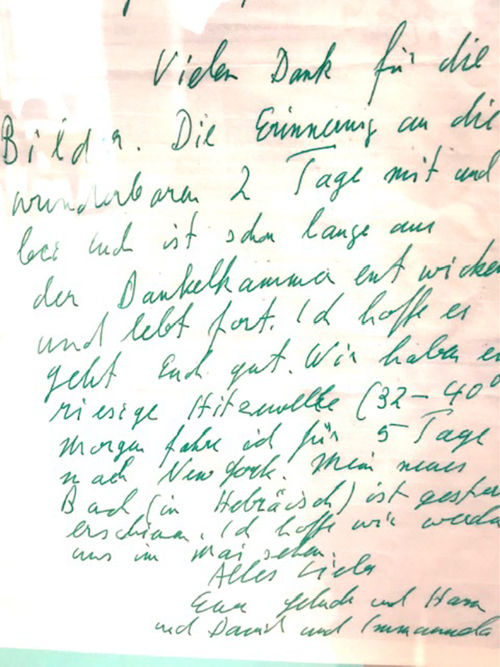 Vielen Dank für die
Bilder. Die Erinnerung an die
wunderbaren 2 Tage mit und
bei Euch ist schon lange aus
der Dunkelkammer entwicke
und lebt fort. Ich hoffe es
geht Euch gut. Wir haben e
riesige Hitzewelle (32-40°
Morgen fahre ich für 5 Tage
nach New York. Mein neues
Buch (in Hebräisch) ist geste
erschienen. Ich hoffe wir werde
uns im Mai sehen.
Alles Liebe
und Hanna
und David und Immanuel